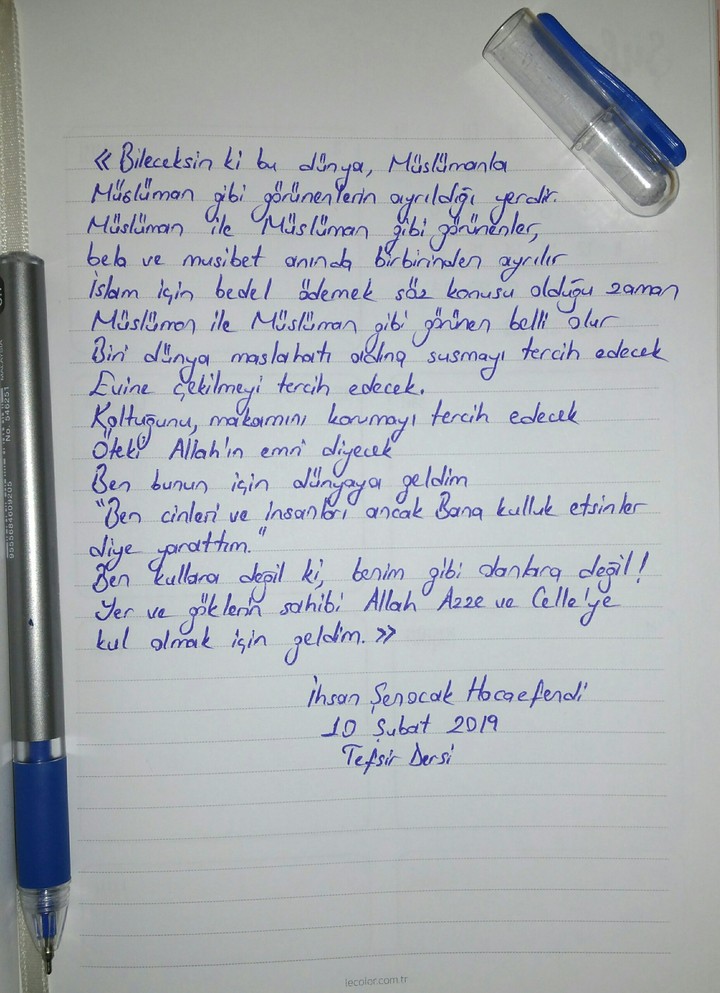 « Bileceksin ki bu dünya, Müslümanla
Müslüman gibi görünenlerin ayrıldığı yerdir.
Müslüman ile Müslüman gibi görünenler,
bela ve musibet anında birbirinden ayrılır
İslam için bedel ödemek söz konusu olduğu zaman
Müslüman ile Müslüman gibi görünen belli olur
Biri dünya maslahatı adına susmayı tercih edecek
Evine çekilmeyi tercih edecek.
Koltuğunu, makamını korumayı tercih edecek
Öteki Allah'ın emri diyecek
Ben bunun için dünyaya geldim
"Ben cinleri ve insanları ancak Bana kulluk etsinler
diye yarattım."
Ben kullara değil ki, benim gibi olanlara değil!
Yer ve göklerin sahibi Allah Azze ve Celle'ye
kul olmak için geldim. »
İhsan Şenocak Hocaefendi
10 Şubat 2019
Tefsir Dersi
No. 546251
9555684609205
MALAYSIA
lecolor.com.tr